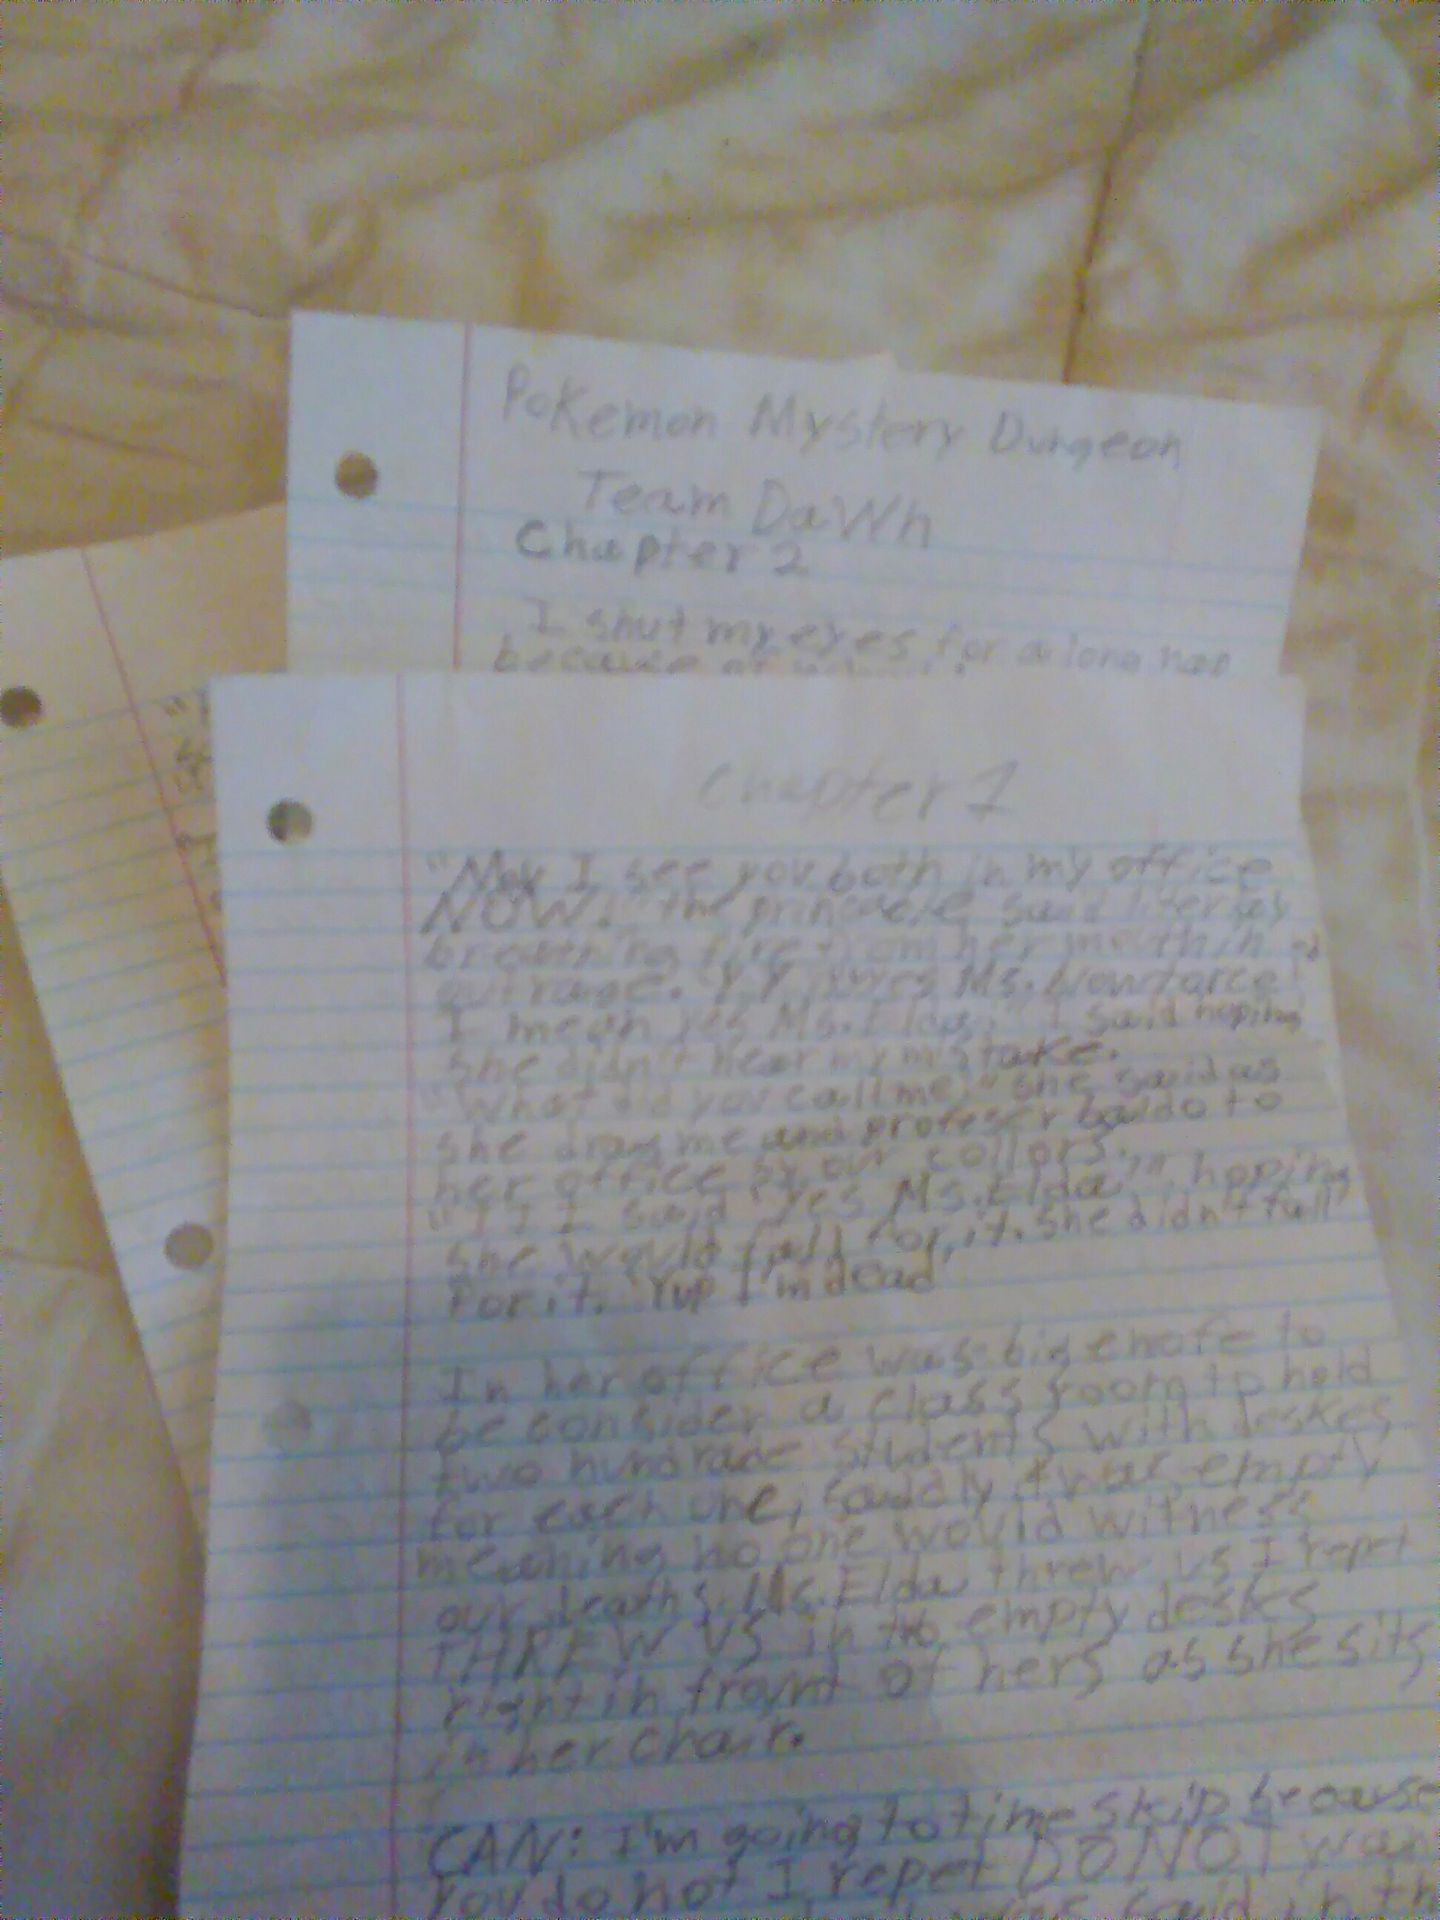 Pokemon Mystery Dungeon
Team DaWn
Chapter 2
I shut my eyes for a long nap
because of
Chapter 1
"May I see you both in my office
NOW!" the said
breathing fire from her mouth in
outrage. "Y Y Yes Ms.
I mean yes Ms. Elda." I said hoping
she didn't hear my mistake.
"What did you call me," she said as
she drags me and profeser to
her office by our collors.
"I I I said "yes Ms. Elda"", hoping
she would fall for it. She didn't fall
for it. "Yup I'm dead"
In her office was big enofe to
be consider a class room to hold
two hundrade students with deskes
for each one, saddly it was empty
meaning no one would witness
our deaths. Ms. Elda threw us I repet
THREW US in to empty deskes
right in fraynt of hers as she sits
in her chair.
CAN: I'm going to time skip because
You do not I repet DO NOT
said in th